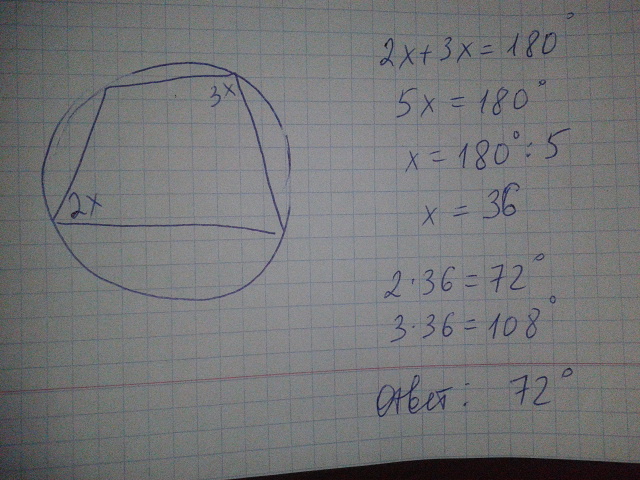 3x
2x
2x+3x=180°
5x=180°
x=180°:5
x=36
2·36=72°
3·36=108°
Ответ: 72°